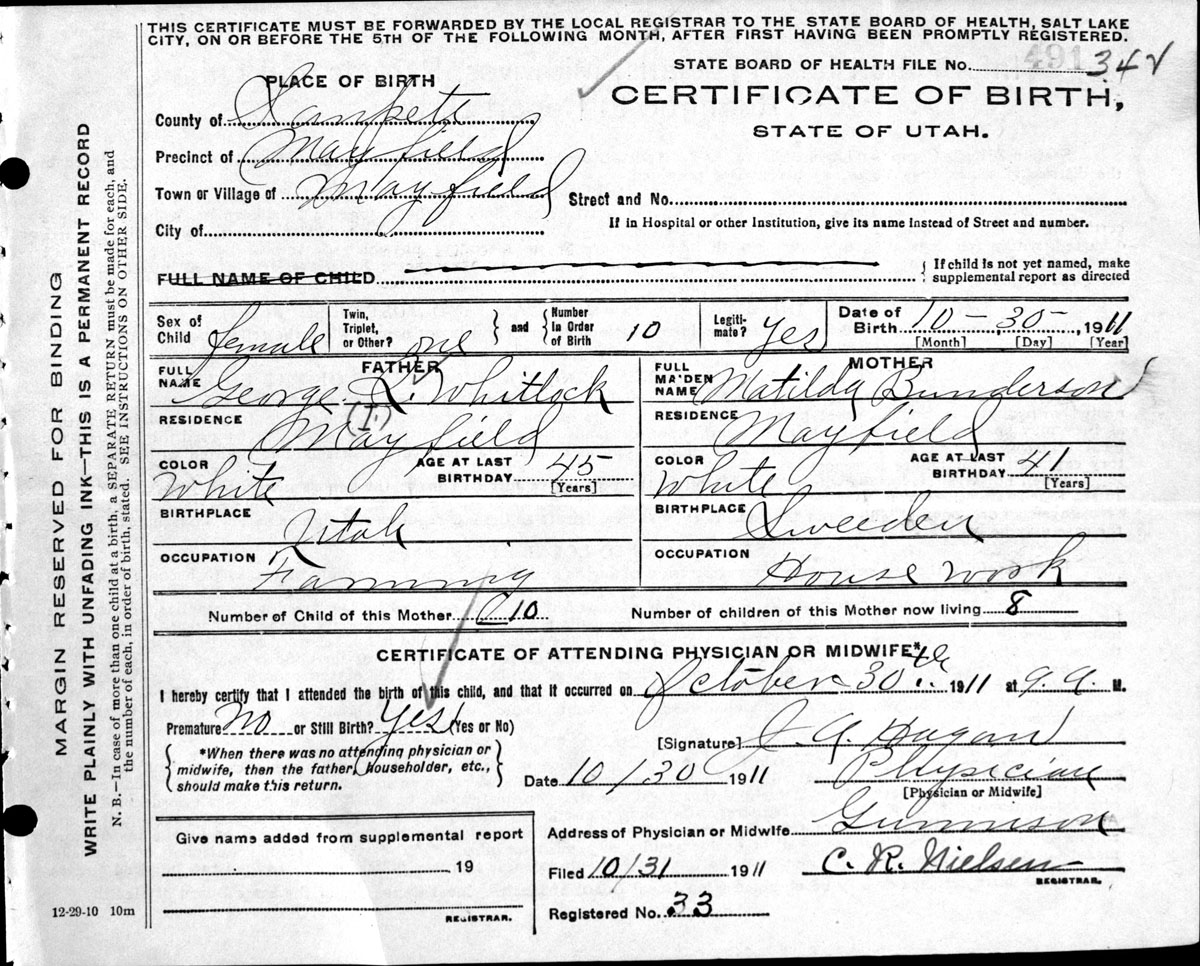 THIS CERTIFICATE MUST BE FORWARDED BY THE LOCAL REGISTRAR TO THE STATE BOARD OF HEALTH, SALT LAKE
CITY, ON OR BEFORE THE 5TH OF THE FOLLOWING MONTH, AFTER FIRST HAVING BEEN PROMPTLY REGISTERED.
STATE BOARD OF HEALTH FILE No. 491 342
PLACE OF BIRTH
CERTIFICATE OF BIRTH,
STATE OF UTAH.
County of Sanpete
Precinct of Mayfield
Town or Village of Mayfield
Street and No.
City of
If in Hospital or other Institution, give its name instead of Street and number.
FULL NAME OF CHILD
{ If child is not yet named, make
supplemental report as directed
Sex of Child female Twin, Triplet, or Other? one } and { Number In Order of Birth 10 Legiti-mate? Yes Date of Birth 10-30-, 1911
[Month] [Day] [Year]
FATHER MOTHER
FULL NAME George L. Whitlock FULL MAIDEN NAME Matilda Bunderson
(I.)
RESIDENCE Mayfield RESIDENCE Mayfield
COLOR White AGE AT LAST BIRTHDAY 45 [Years] COLOR White AGE AT LAST BIRTHDAY 41 [Years]
BIRTHPLACE Utah BIRTHPLACE Sweeden
OCCUPATION Farming OCCUPATION House work
Number of Child of this Mother 10 Number of children of this Mother now living 8
CERTIFICATE OF ATTENDING PHYSICIAN OR MIDWIFE*
I hereby certify that I attended the birth of this child, and that it occurred on October 30th 1911 at 9. a. M.
Premature No or Still Birth? Yes (Yes or No)
[Signature] J. A. Hagan
{ *When there was no attending physician or
midwife, then the father, householder, etc.,
should make this return. }
Date 10/30 1911 Physician
[Physician or Midwife]
Address of Physician or Midwife Gunnison
Give name added from supplemental report
19
REGISTRAR.
Filed 10/31 1911 C. R. Nielsen
REGISTRAR.
Registered No. 33
12-29-10 10m
MARGIN RESERVED FOR BINDING
WRITE PLAINLY WITH UNFADING INK—THIS IS A PERMANENT RECORD
N. B.—In case of more than one child at a birth, a SEPARATE RETURN must be made for each, and
the number of each, in order of birth, stated. SEE INSTRUCTIONS ON OTHER SIDE.